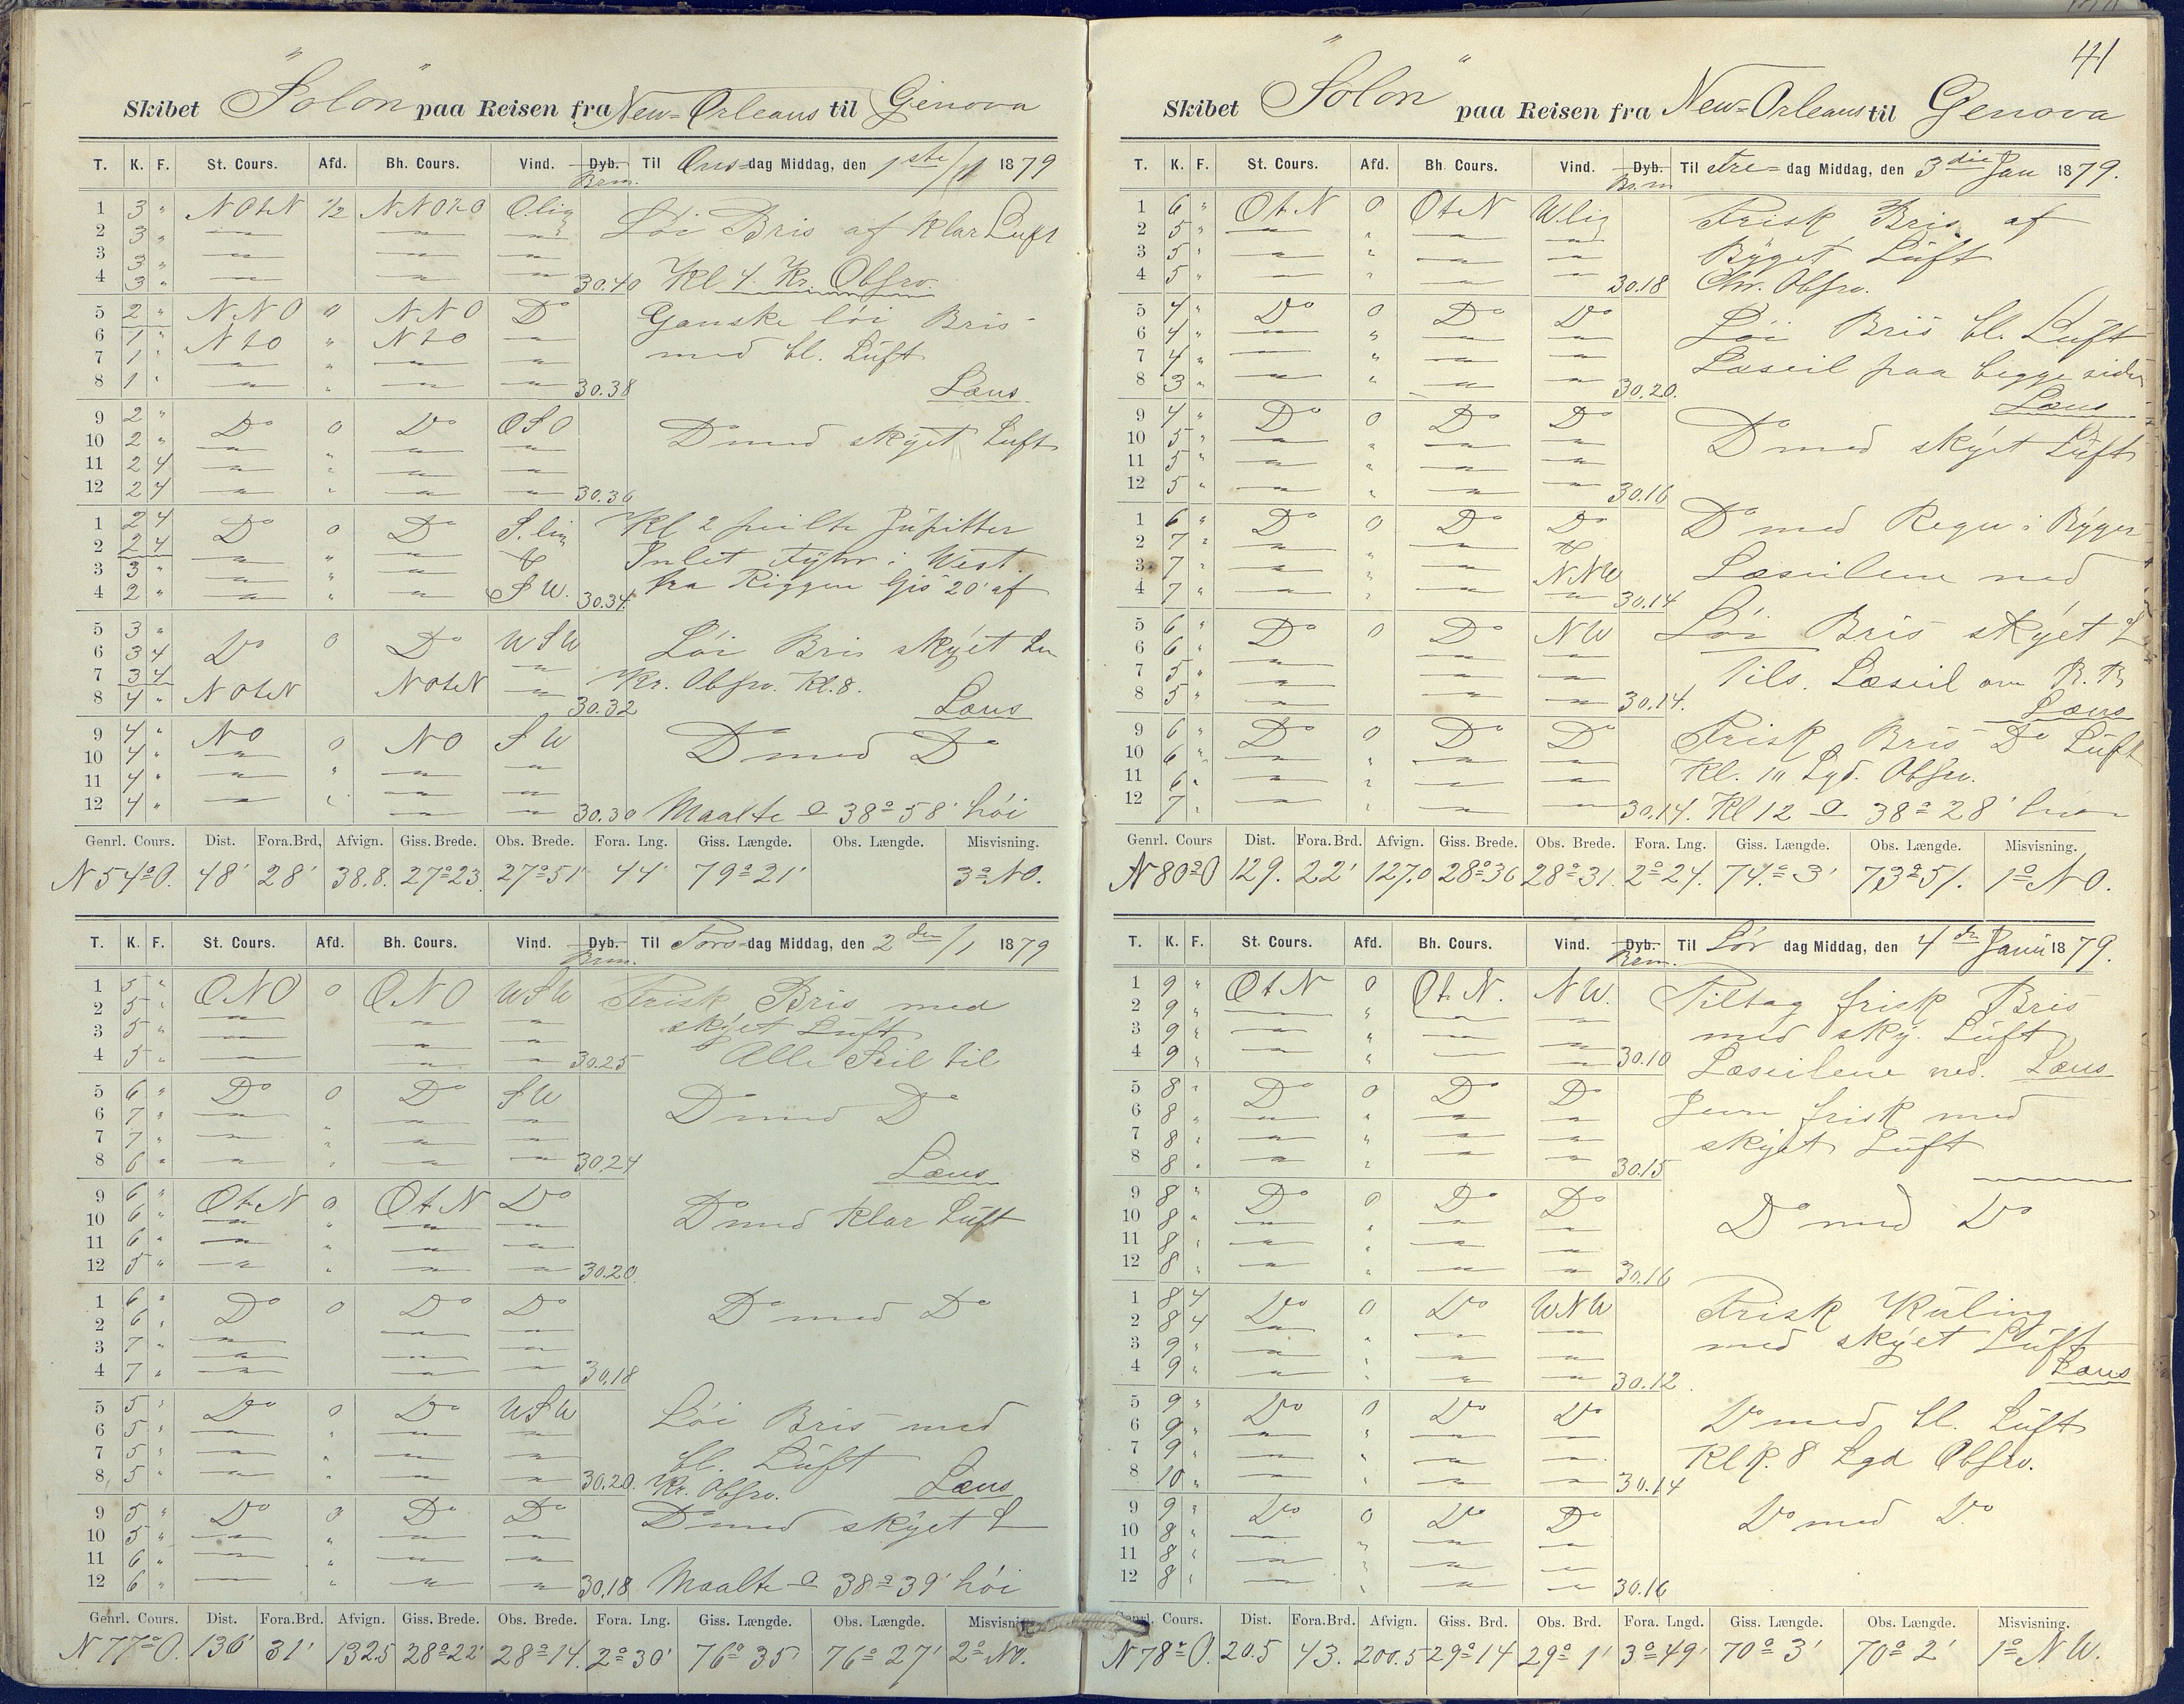 Skibet "Solon" paa Reisen fra New-Orleans til Genova
T. K. F. St. Cours. Afd. Bh. Cours. Vind. Dyb. Brm. Til Ons-dag Middag, den 1ste/1 1879
1 3 " NOtN 1/2 NNOtO Olig Löi Bris af klar Luft
2 3 "
3 3 "
4 3 " 30.40 Kl 4 Kr. Obsrv.
5 2 " NNO 0 NNO Do Ganske löi Bris
6 1 " NtO " NtO med bl. Luft
7 1 "
8 1 " 30.38 Læns
9 2 " Do 0 Do OSO Do med skyet Luft
10 2 "
11 2 4
12 2 4 30.36
1 2 4 Do 0 Do S.lig Kl 2 peilte Jupitter
2 2 4 Inlet Fyhr i West.
3 3 "
4 2 " SW. 30.34 fra Riggen Gis 20' af
5 3 " Do 0 Do WSW Löi Bris skyet Lu
6 3 4
7 3 4 Kr. Obsrv. Kl. 8.
8 4 " NOtN NOtN 30.32 Læns
9 4 " NO 0 NO SW Do med Do
10 4 "
11 4 "
12 4 " 30.30 Maalte 38° 58' höi
Genrl. Cours. Dist. Fora.Brd, Afvign. Giss. Brede. Obs. Brede. Fora. Lng. Giss. Længde. Obs. Længde. Misvisning.
N 54° O. 48' 28' 38.8. 27° 23 27° 51' 44' 79° 21' 3° NO.
T. K. F. St. Cours. Afd. Bh. Cours. Vind. Dyb. Brm. Til Tors-dag Middag, den 2den/1 1879
1 5 " ONO 0 ONO WSW Frisk Bris med
2 5 " skyet Luft
3 5 "
4 5 " 30.25 Alle Seil til
5 6 " Do 0 Do SW Do med Do
6 7 "
7 7 "
8 6 " 30.24 Læns
9 6 " OtN 0 OtN Do Do med klar Luft
10 6 "
11 6 "
12 5 " 30.20.
1 6 " Do 0 Do Do Do med Do
2 6 "
3 7 "
4 7 " 30.18
5 5 " Do 0 Do WSW Löi Bris med
6 5 "
7 5 " bl. Luft
8 5 " 30.20. Kr. Obsrv. Læns
9 5 " Do 0 Do Do Do med skyet L
10 5 "
11 6 "
12 6 " 30.18 Maalte 38° 39' höi
Genrl. Cours. Dist. Fora.Brd. Afvign. Giss. Brede. Obs. Brede. Fora. Lng. Giss. Længde. Obs. Længde. Misvisning
N 77° O. 136' 31' 132.5 28° 22' 28° 14. 2° 30' 76° 35 76° 27' 2° NO.
41
Skibet "Solon" paa Reisen fra New-Orleans til Genova
T. K. F. St. Cours. Afd. Bh. Cours. Vind. Dyb. Brm Til Fre-dag Middag, den 3die Jan 1879.
1 6 " OtN 0 OtN Wlig Frisk Bris af
2 5 "
3 5 " Byget Luft
4 5 " 30.18 Chr. Obsrv.
5 4 " Do 0 Do Do Löi Bris bl. Luft
6 4 "
7 4 " Læseil paa begge sider
8 3 " 30.20. Læns
9 4 " Do 0 Do Do Do med skyet Luft
10 5 "
11 5 "
12 5 " 30.16
1 6 " Do 0 Do Do Do med Regn i Byger
2 7 "
3 7 " NNW Læseilene ned
4 7 " 30.14
5 6 " Do 0 Do NW Löi Bris skyet L
6 6 "
7 5 " Tils. Læseil om B. B
8 5 " 30.14. Læns
9 6 " Do 0 Do Do Frisk Bris Do Luft
10 6 " Kl. Lgd. Obsrv.
11 6 "
12 7 " 30.14. Kl 12 38° 28'
Genrl. Cours Dist. Fora.Brd. Afvign. Giss. Brede. Obs. Brede. Fora. Lng. Giss. Længde. Obs. Længde. Misvisning.
N 80° O 129. 22' 127.0 28° 36 28° 31. 2° 24. 74° 3' 73° 51. 1° NO.
T. K. F. St. Cours. Afd. Bh. Cours. Vind. Dyb. Brm. Til Lör dag Middag, den 4de Janu 1879.
1 9 " OtN 0 OtN. NW. Tiltag frisk Bris
2 9 "
3 9 " med sky. Luft
4 9 " 30.10 Læseilene ned. Læns
5 8 " Do 0 Do Do Jevn frisk med
6 8 "
7 8 " skyet Luft
8 8 " 30.15
9 8 " Do 0 Do Do Do med Do
10 8 "
11 8 "
12 8 " 30.16
1 8 4 Do 0 Do WNW Frisk Kuling
2 8 4 med skyet Luft
3 9 "
4 9 " 30.12. Læns
5 9 " Do 0 Do Do Do med bl. Luft
6 9 "
7 9 " Kl. 8 Lgd Obsrv.
8 10 " 30.14
9 9 " Do 0 Do Do Do med Do
10 8 "
11 8 "
12 8 " 30.16
Genrl. Cours. Dist. Fora.Brd. Afvign. Giss. Brd. Obs. Brd. Fora. Lngd. Giss. Længde. Obs. Længde. Misvisning.
N 78° O. 205 43. 200.5 29° 14 29° 1' 3° 49' 70° 3' 70° 2' 1° NW.